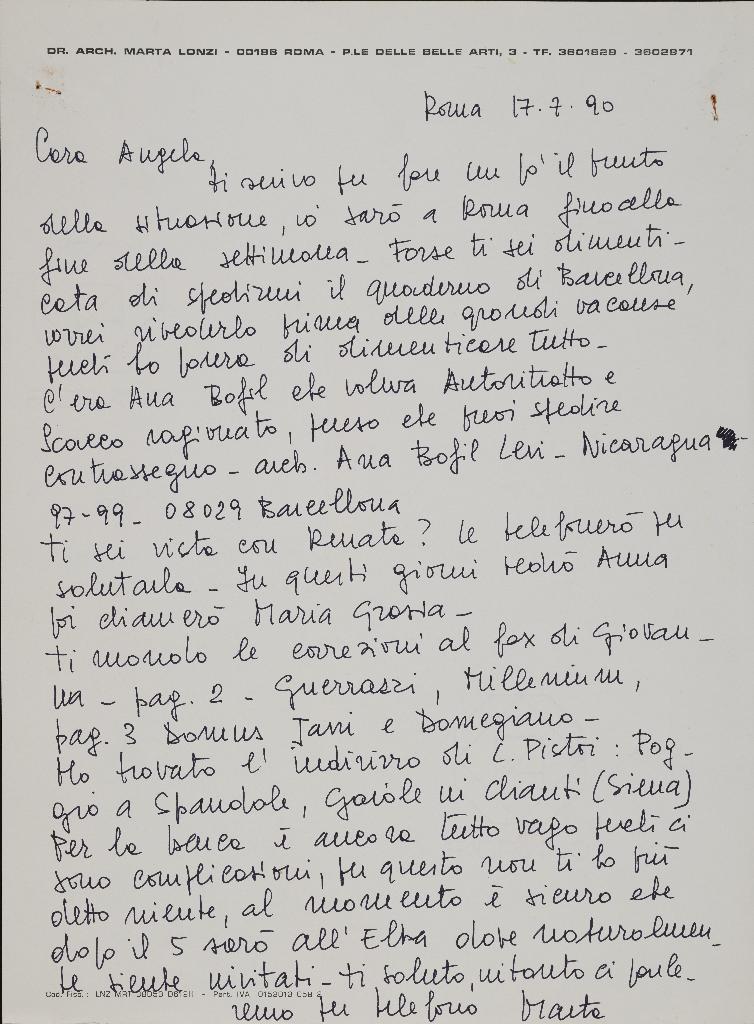 DR. ARCH. MARTA LONZI - 00196 ROMA - P.LE DELLE BELLE ARTI, 3 - TF. 3601829 - 3602971
Roma 17.7.90
Cara Angela,
ti scrivo per fare un po' il punto
della situazione, io sarò a Roma fino alla
fine della settimana_ Forse ti sei dimenti-
cata di spedirmi il quaderno di Barcellona,
vorrei rivederlo prima delle grandi vacanze,
perché ho paura di dimenticare tutto_
C'era Ana Bofil che voleva Autoritratto e
Scacco ragionato, penso che puoi spedire
contrassegno_ arch. Ana Bofil Levi_ Nicaragua
97-99_ 08029 Barcellona
Ti sei vista con Renata? Le telefonerò per
salutarla_ In questi giorni vedrò Anna
poi chiamerò Maria Grazia_
Ti mando le correzioni al fax di Giovan_
na_ pag. 2_ Guerrazzi, Millenium,
pag. 3 Domus Jani e Domegiano_
Ho trovato l'indirizzo di C. Pistoi: Pog_
gio a Spandole, Gaiole in Chianti (Siena)
Per la barca è ancora tutto vago perché ci
sono complicazioni, per questo non ti ho più
detto niente, al momento è sicuro che
dopo il 5 sarò all'Elba dove naturalmen_
te siente invitati_ ti saluto, intanto ci parle_
Cod. Fisc.: LNZ MRT - Part. IVA
remo per telefono Marta